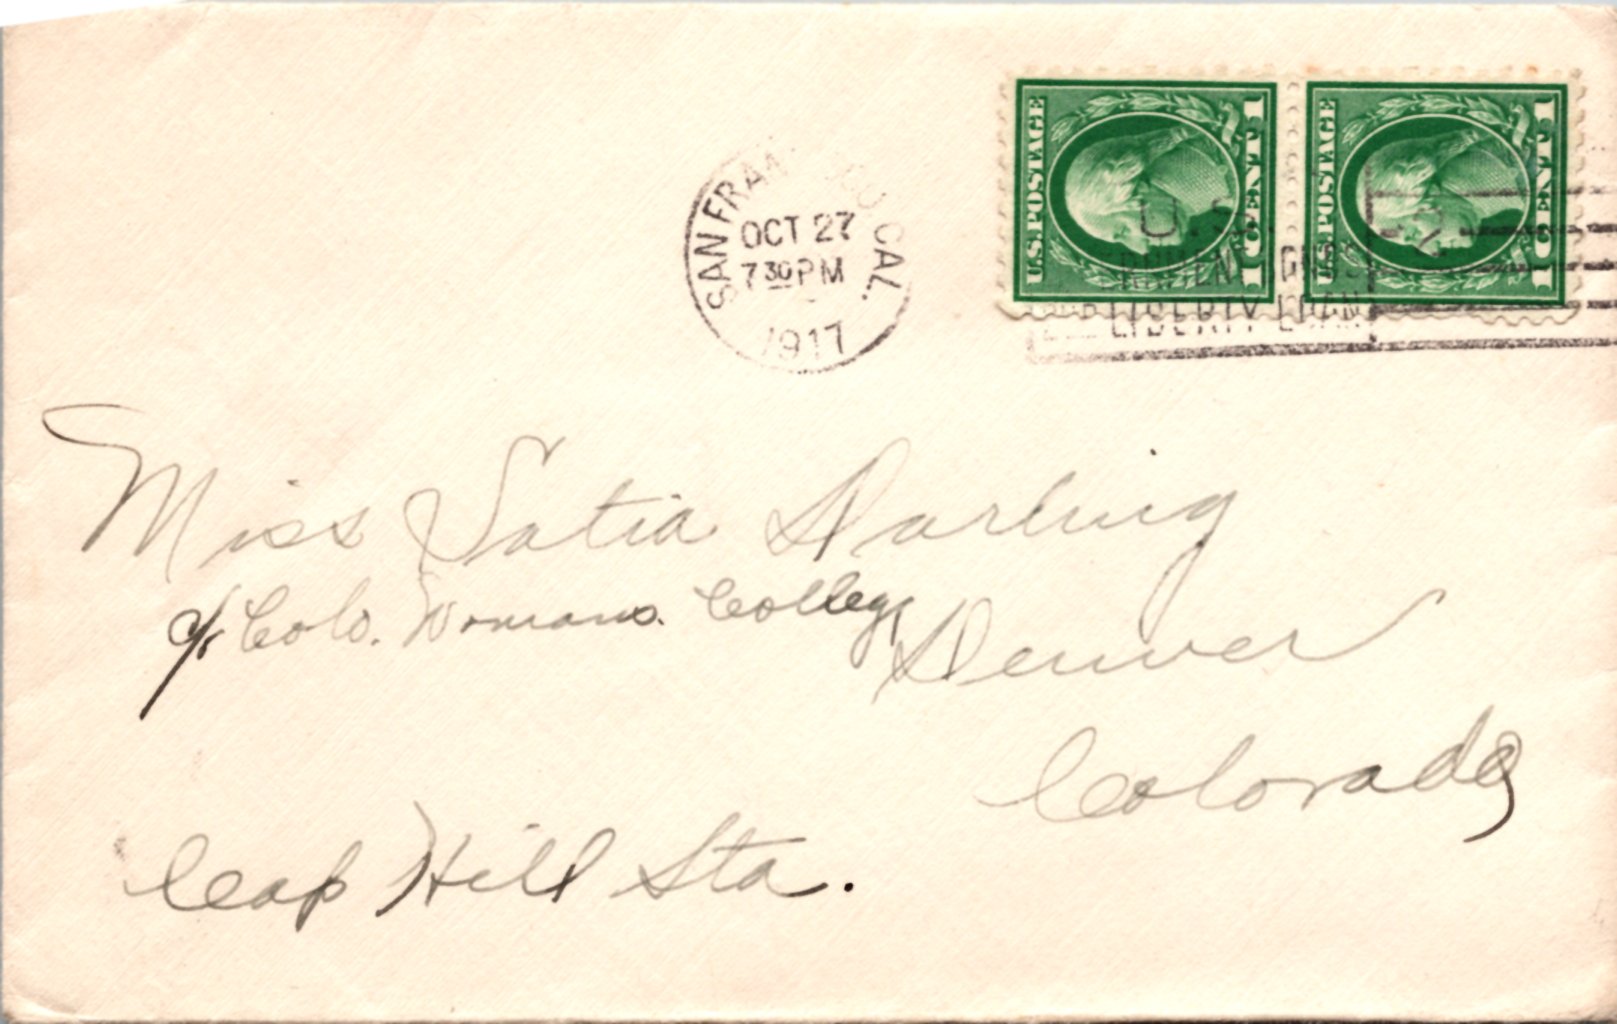 SAN FRANCISCO CAL.
OCT 27
7 30 PM
1917
U.S. POSTAGE
1 CENT 1
U.S. POSTAGE
1 CENT 1
U.S.
LIBERTY LOAN
Miss Satia Darling
c/o Colo. Womans. College
Denver
Colorado
Cap Hill Sta.